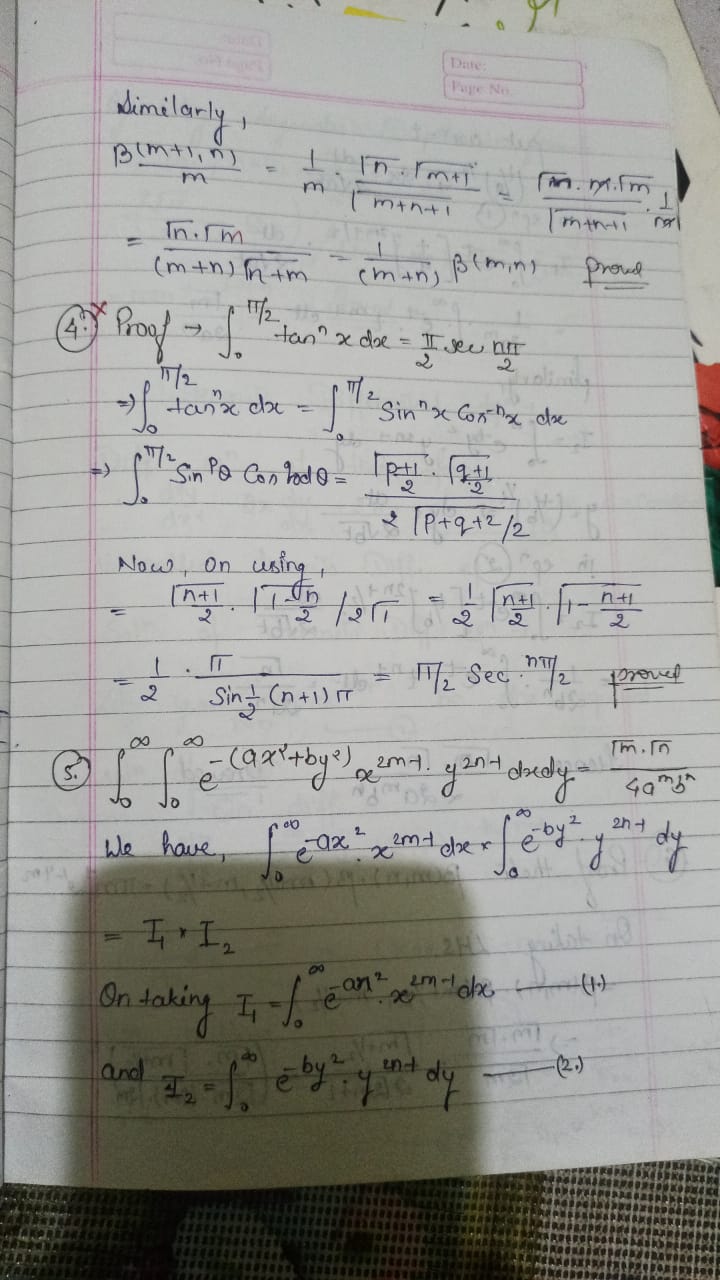 Date:
Page No.
Similarly,
β(m+1, n)/m = 1/m · Γn · Γm+1 / Γm+n+1 = Γn · m · Γm / Γm+n+1 · 1/m
= Γn · Γm / (m+n) Γn+m = 1/(m+n) β(m,n) proved
(4.) x Proof → ∫₀^π/2 tanⁿ x dx = π/2 sec nπ/2
⇒ ∫₀^π/2 tanⁿx dx = ∫₀^π/2 Sinⁿx Cos⁻ⁿx dx
⇒ ∫₀^π/2 Sin^pθ Cos^qθdθ = Γp+1/2 · Γq+1/2 / 2 Γp+q+2/2
Now, on using,
= Γn+1/2 · Γ1-n/2 / 2Γ1 = 1/2 Γn+1/2 · Γ1 - n+1/2
= 1/2 · π / Sin 1/2 (n+1)π = π/2 Sec · nπ/2 proved
(5.) ∫₀^∞ ∫₀^∞ e^-(ax²+by²) x^2m-1 · y^2n-1 dxdy = Γm · Γn / 4a^m b^n
We have, ∫₀^∞ e^-ax² · x^2m-1 dx × ∫₀^∞ e^-by² · y^2n-1 dy
= I₁ × I₂
On taking I₁ = ∫₀^∞ e^-ax² · x^2m-1 dx —— (1.)
and I₂ = ∫₀^∞ e^-by² · y^2n-1 dy —— (2.)